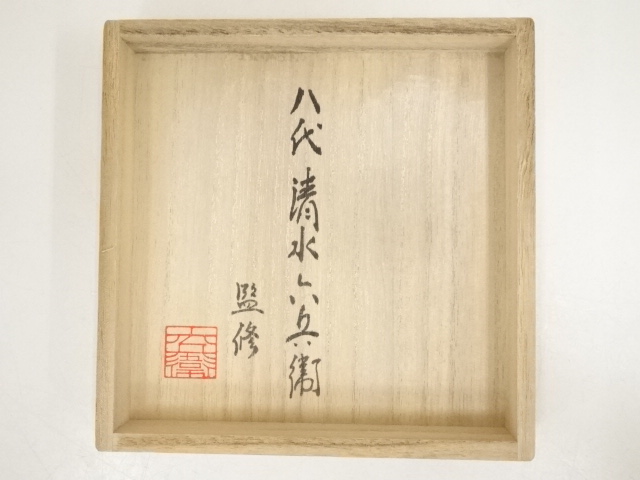 八代 清水六兵衛
監修